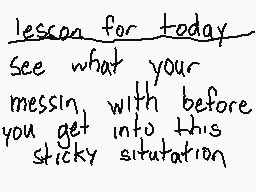 lesson for today
see what your
messin with before
you get into this
sticky situtation